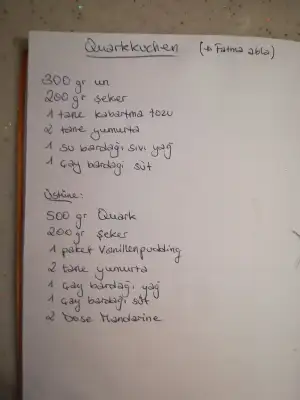 Quarkkuchen (→ Fatma abla)
300 gr un
200 gr şeker
1 tane kabartma tozu
2 tane yumurta
1 su bardağı sıvı yağ
1 çay bardağı süt
üstüne:
500 gr Quark
200 gr şeker
1 paket Vanillenpudding
2 tane yumurta
1 çay bardağı yağ
1 çay bardağı süt
2 Dose Mandarine